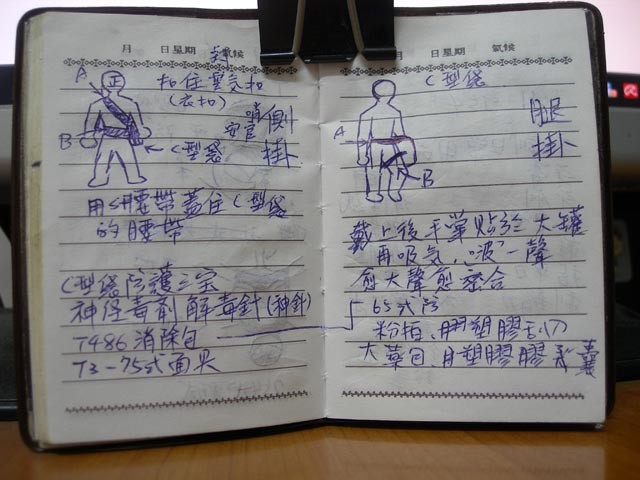 月 日 星期 氣候
A 正 扣住電気扣
(衣扣)
B C型袋 側掛
用S腰帶蓋住C型袋
的腰帶
C型袋防護三宝
神經毒劑解毒針(神針)
T486消除包
T3-75式面具
月 日 星期 氣候
C型袋
A 腿掛
B
戴上後手掌貼於大罐
再吸気,"啵"一聲
愈大聲愈密合
65式防
粉拍、用塑膠刮刀
大藥包,用塑膠膠囊